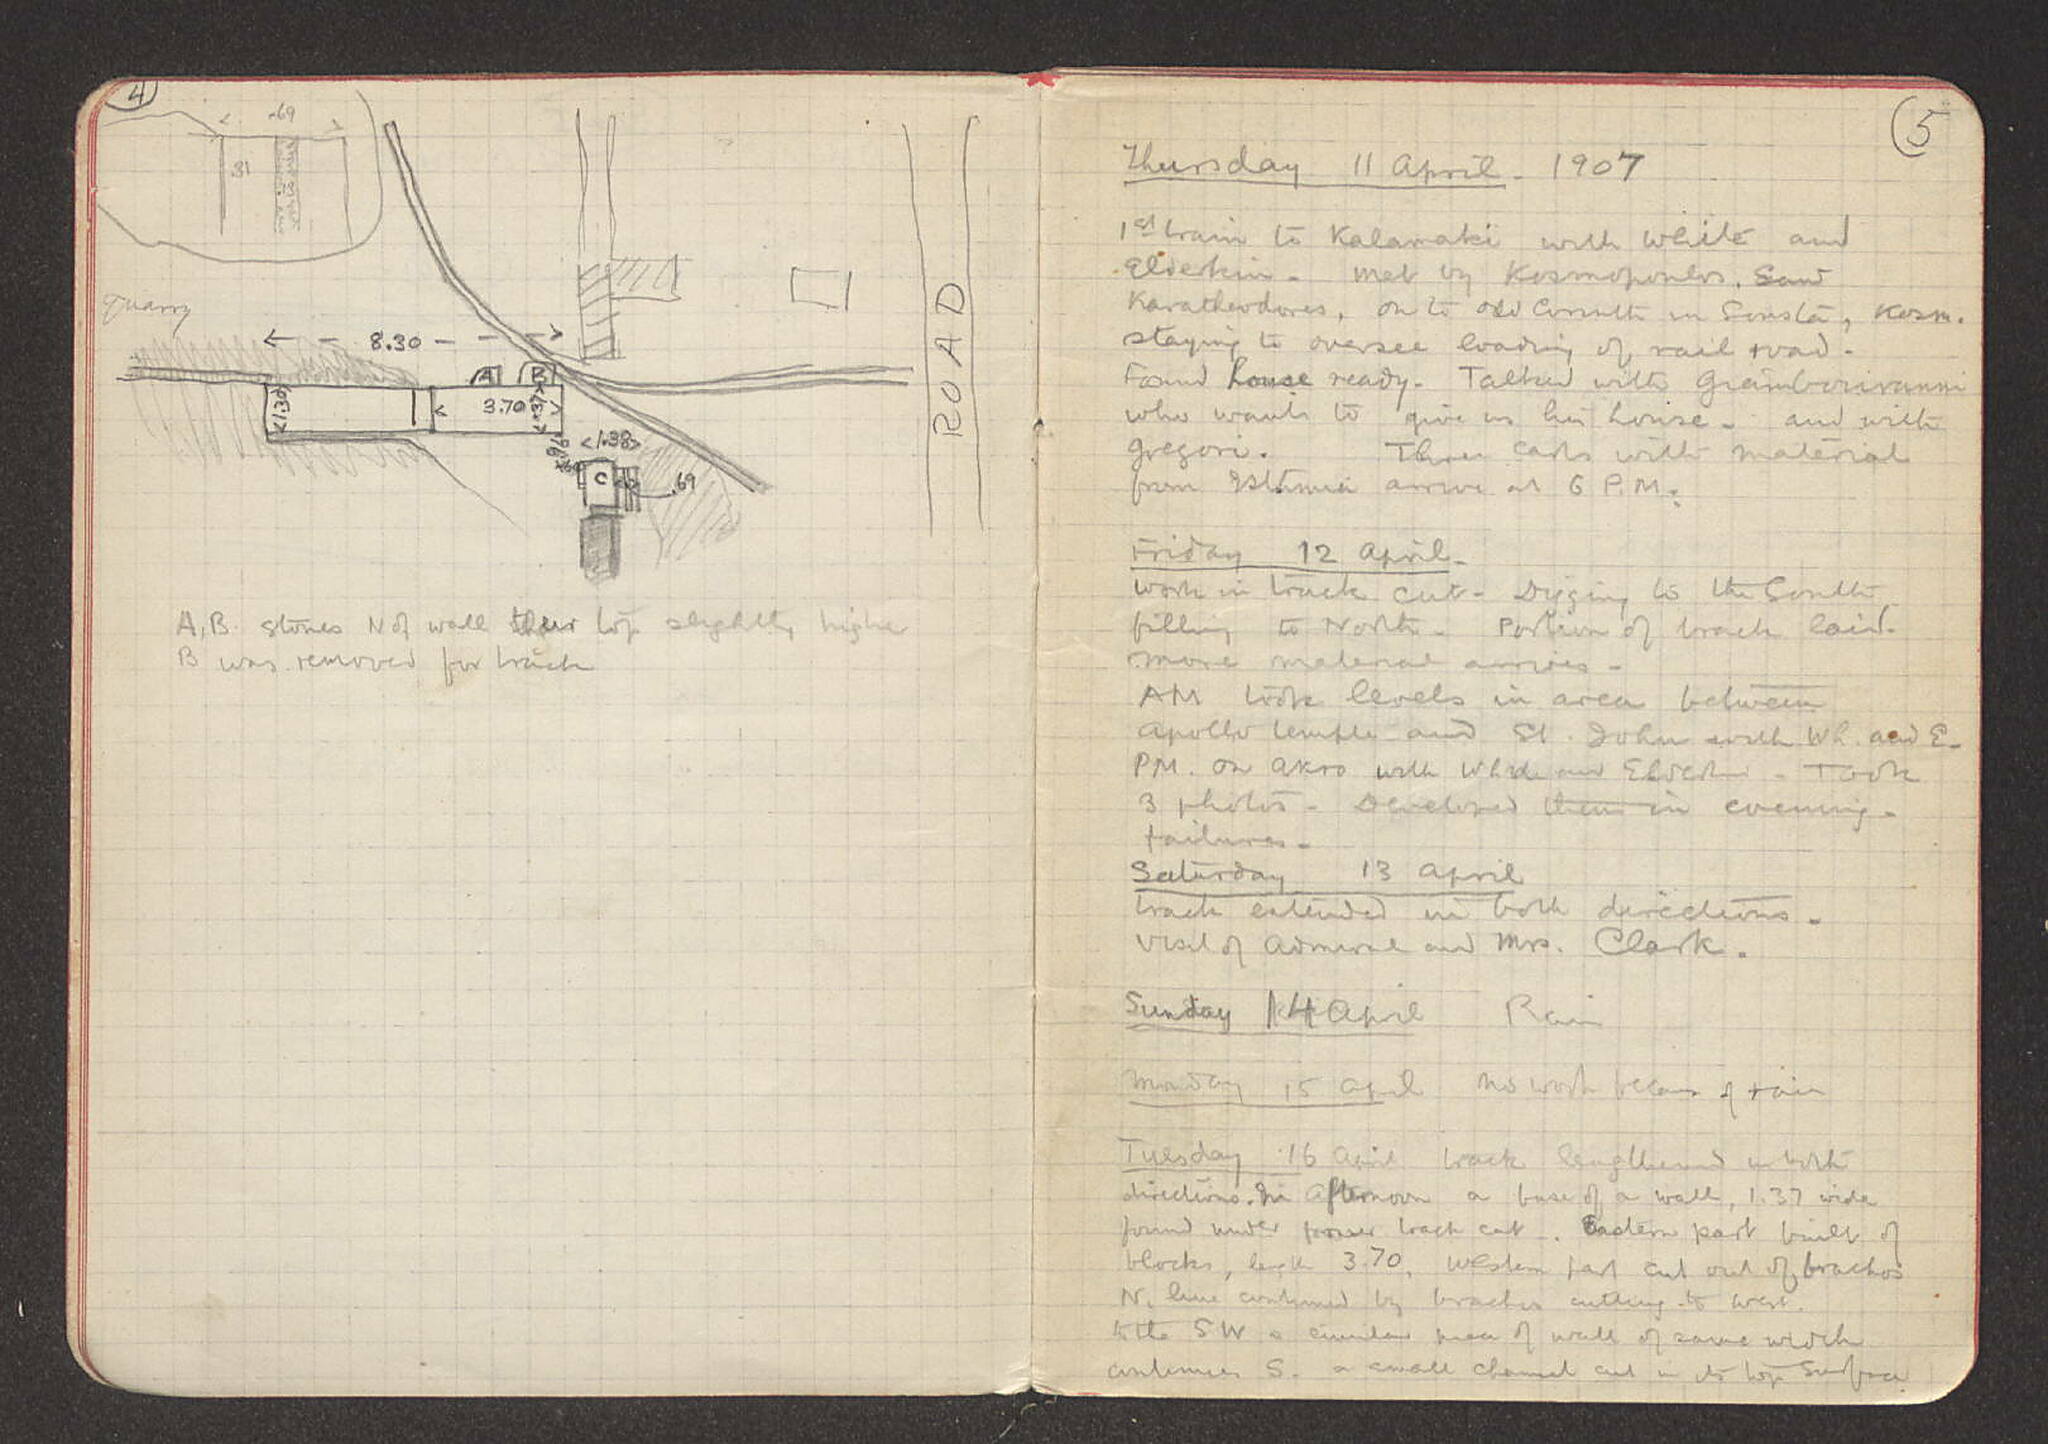 4
.69
.31
quarry
8.30
A B
1.30 3.70 1.37
1.38
.69
C
ROAD
A, B. stones N of wall their top slightly higher
B was removed for track
5
Thursday 11 April - 1907
1st train to Kalamaki with White and
Elderkin - met by Kosmopoulos. Saw
Karatheodores, on to old Corinth in Sousta, Kosm.
staying to oversee loading of rail road -
Found house ready - Talked with
who wants to give us his house - and with
Gregori. Three carts with material
from Isthmia arrive at 6 P.M.
Friday 12 April -
Work in track cut - Digging to the South
filling to North - Portion of track laid -
more material arrives -
AM took levels in area between
Apollo temple and St. John with Wh. and E -
PM. on Akro with White and Elderkin - Took
3 photos - Developed them in evening -
failures -
Saturday 13 April
track extended in both directions -
Visit of Admiral and Mrs. Clark.
Sunday 14 April Rain
Monday 15 April No work because of rain
Tuesday 16 April track lengthened in both
directions. In Afternoon a base of a wall, 1.37 wide
found under former track cut -. Eastern part built of
blocks, length 3.70, Western part cut out of brachos
N. line continued by brachos cutting to west.
to the SW a similar piece of wall of same width
continues S. a small channel cut in its top surface